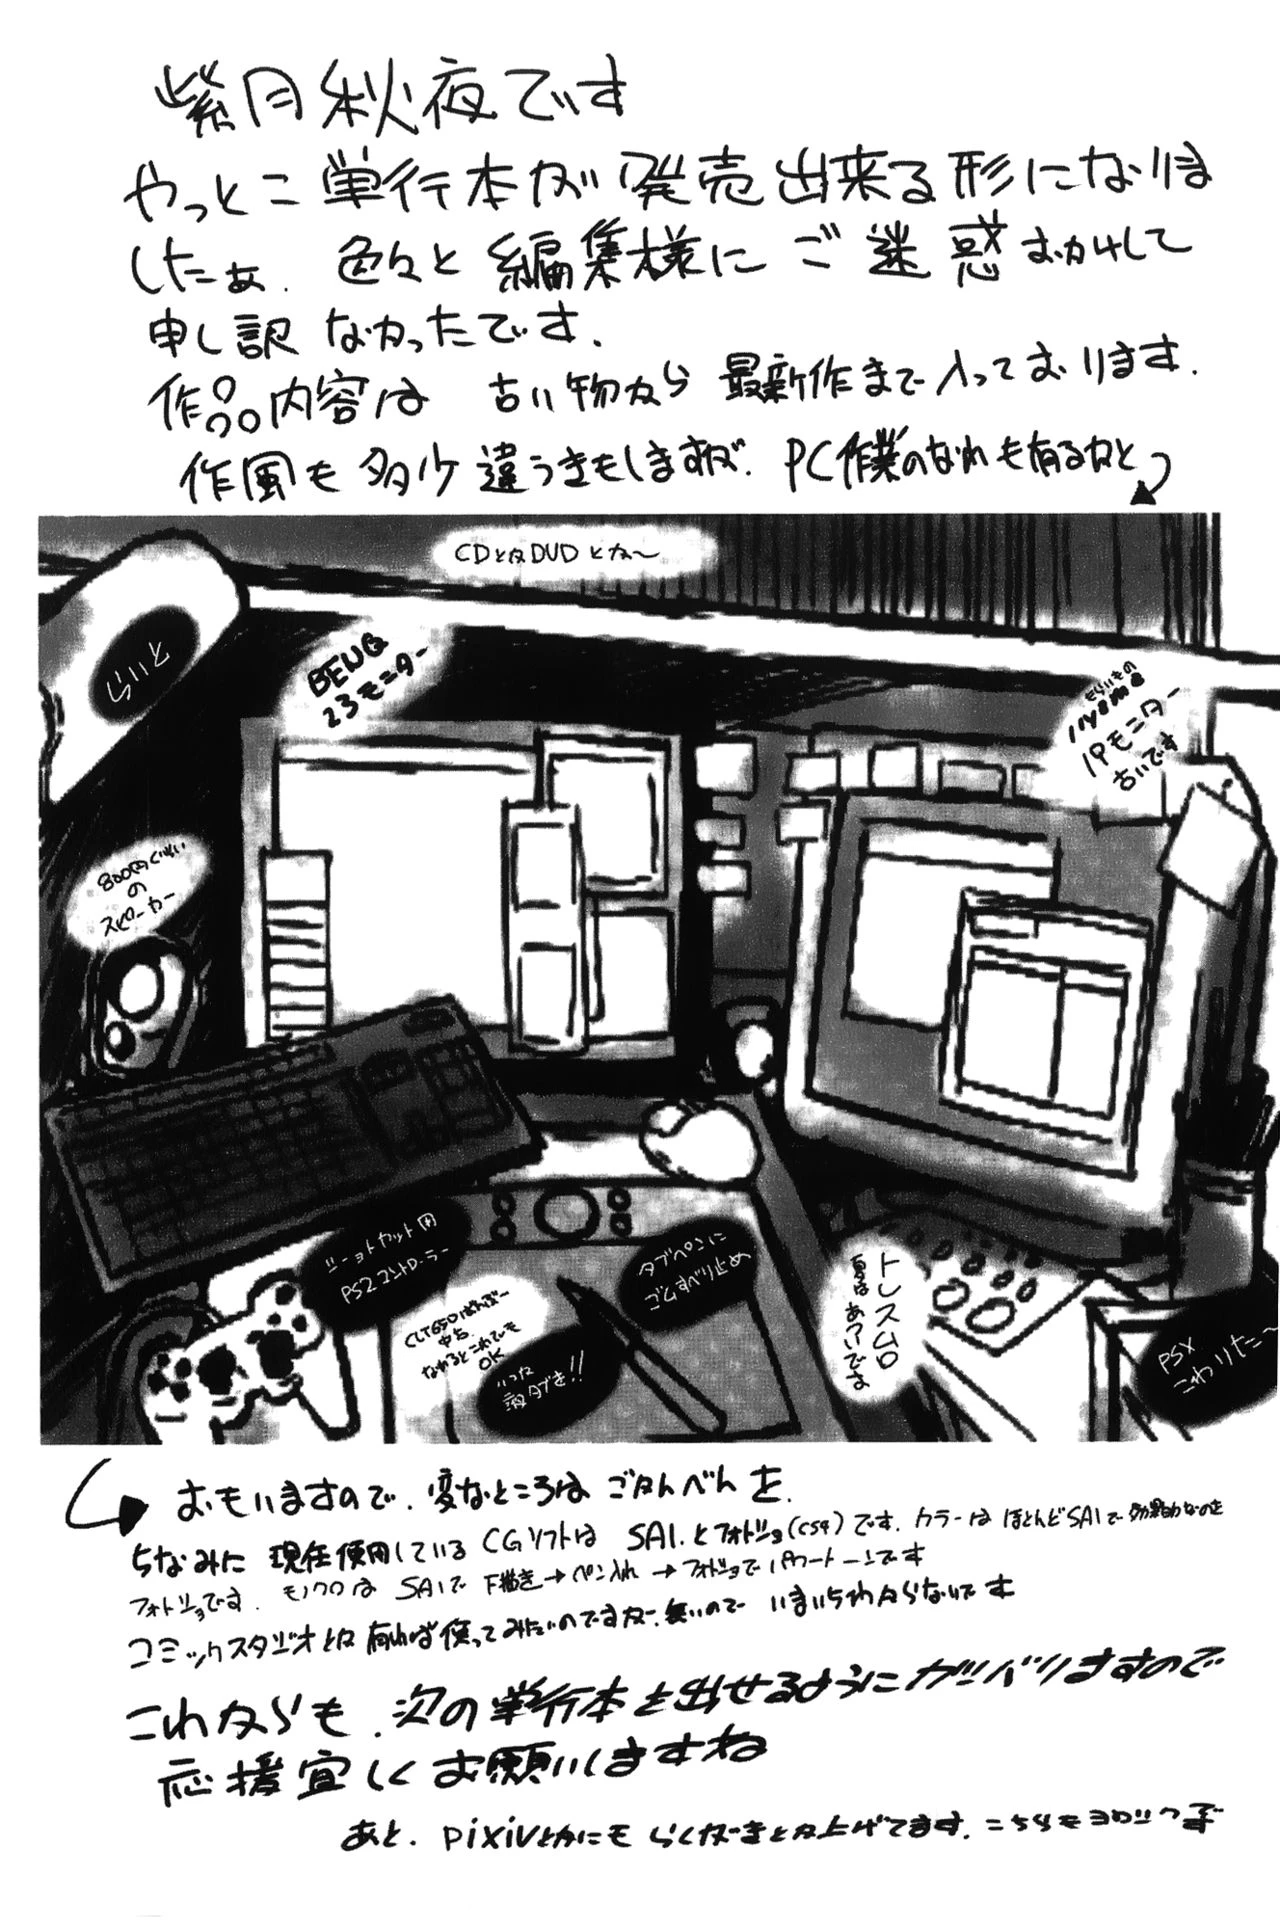 紫月秋夜です
やっとこ単行本が発売出来る形になりま
したぁ. 色々と編集様にご迷惑おかけして
申し訳なかったです.
作品内容は 古い物から最新作まで入っております.
作風も多少違うきもしますが. PC作業のなれも有るかと
CDとかDVDとか〜
らいと
BENQ
23モニター
もらいもの
iiyama
19モニター
古いです
800円ぐらい
の
スピーカー
ショートカット用
PS2コントローラー
タブペンに
ゴムすべり止め
CLT650ばんぶー
中古
なれるとこれでも
OK
いつか
液タブを!!
トレス台
夏はあついです
PSX
こわりた〜
おもいますので. 変なところはごかんべんを.
ちなみに 現在使用しているCGソフトは SAI.とフォトショ(CS4)です. カラーは ほとんどSAIで 効果的なのを
フォトショです. モノクロは SAIで 下描き→ペン入れ→フォトショでパワートーンです
コミックスタジオとか有れば使ってみたいのですが. 無いので いまいちわからないです
これからも. 次の単行本を出せるようにガンバりますので
応援宜しくお願いしますね
あと. pixivとかにも らくがきとか上げてます. こちらもヨロシクデ